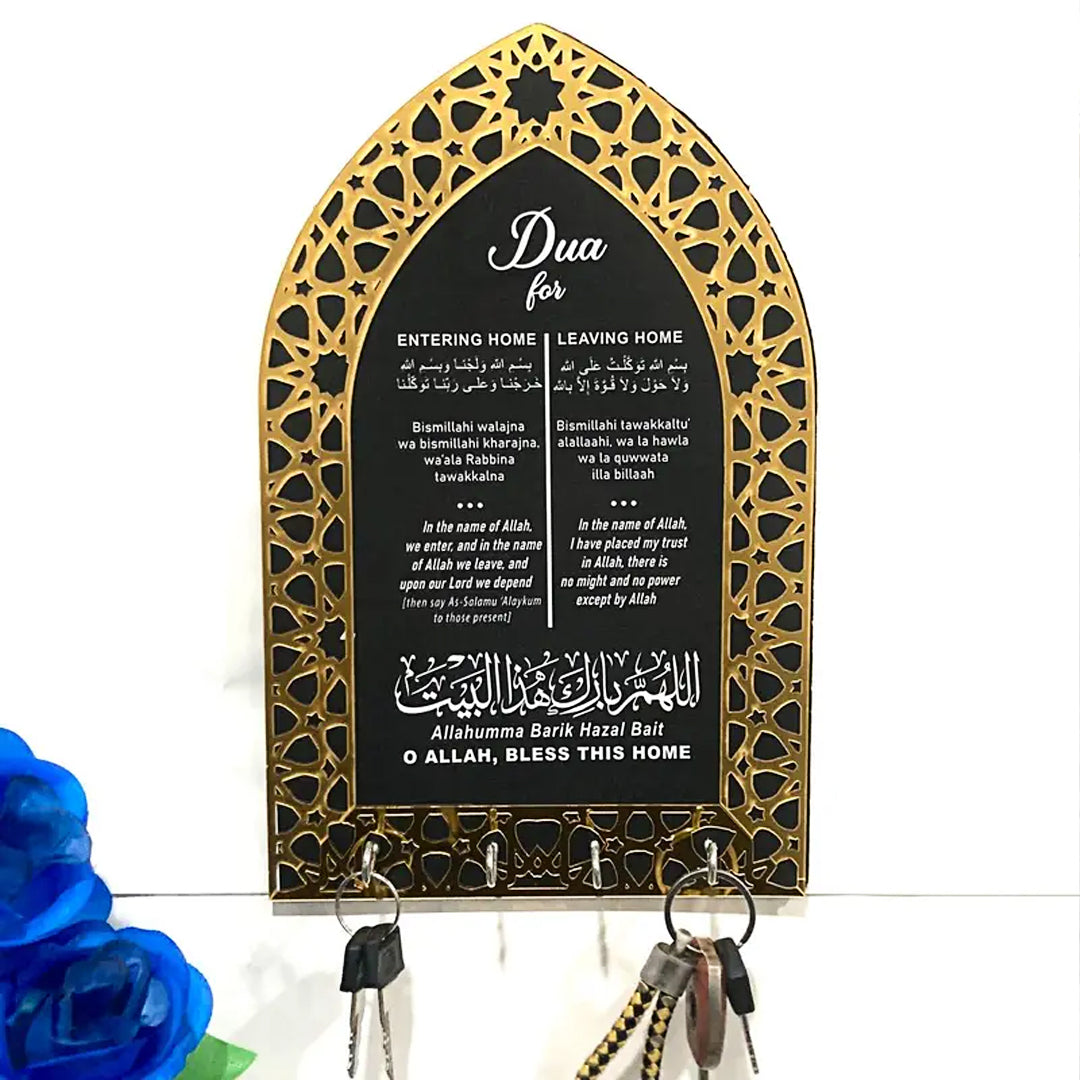 Dua
for
ENTERING HOME
بِسْمِ اللَّهِ وَلَجْنَا وَبِسْمِ اللَّهِ
خَرَجْنَا وَعَلَى رَبِّنَا تَوَكَّلْنَا
Bismillahi walajna
wa bismillahi kharajna,
wa'ala Rabbina
tawakkalna
•••
In the name of Allah,
we enter, and in the name
of Allah we leave, and
upon our Lord we depend
[then say As-Salamu 'Alaykum
to those present]
LEAVING HOME
بِسْمِ اللَّهِ تَوَكَّلْتُ عَلَى اللَّهِ
وَلاَ حَوْلَ وَلاَ قُوَّةَ إِلاَّ بِاللَّهِ
Bismillahi tawakkaltu'
alallaahi, wa la hawla
wa la quwwata
illa billaah
•••
In the name of Allah,
I have placed my trust
in Allah, there is
no might and no power
except by Allah
اللَّهُمَّ بَارِكْ هَذَا الْبَيْت
Allahumma Barik Hazal Bait
O ALLAH, BLESS THIS HOME